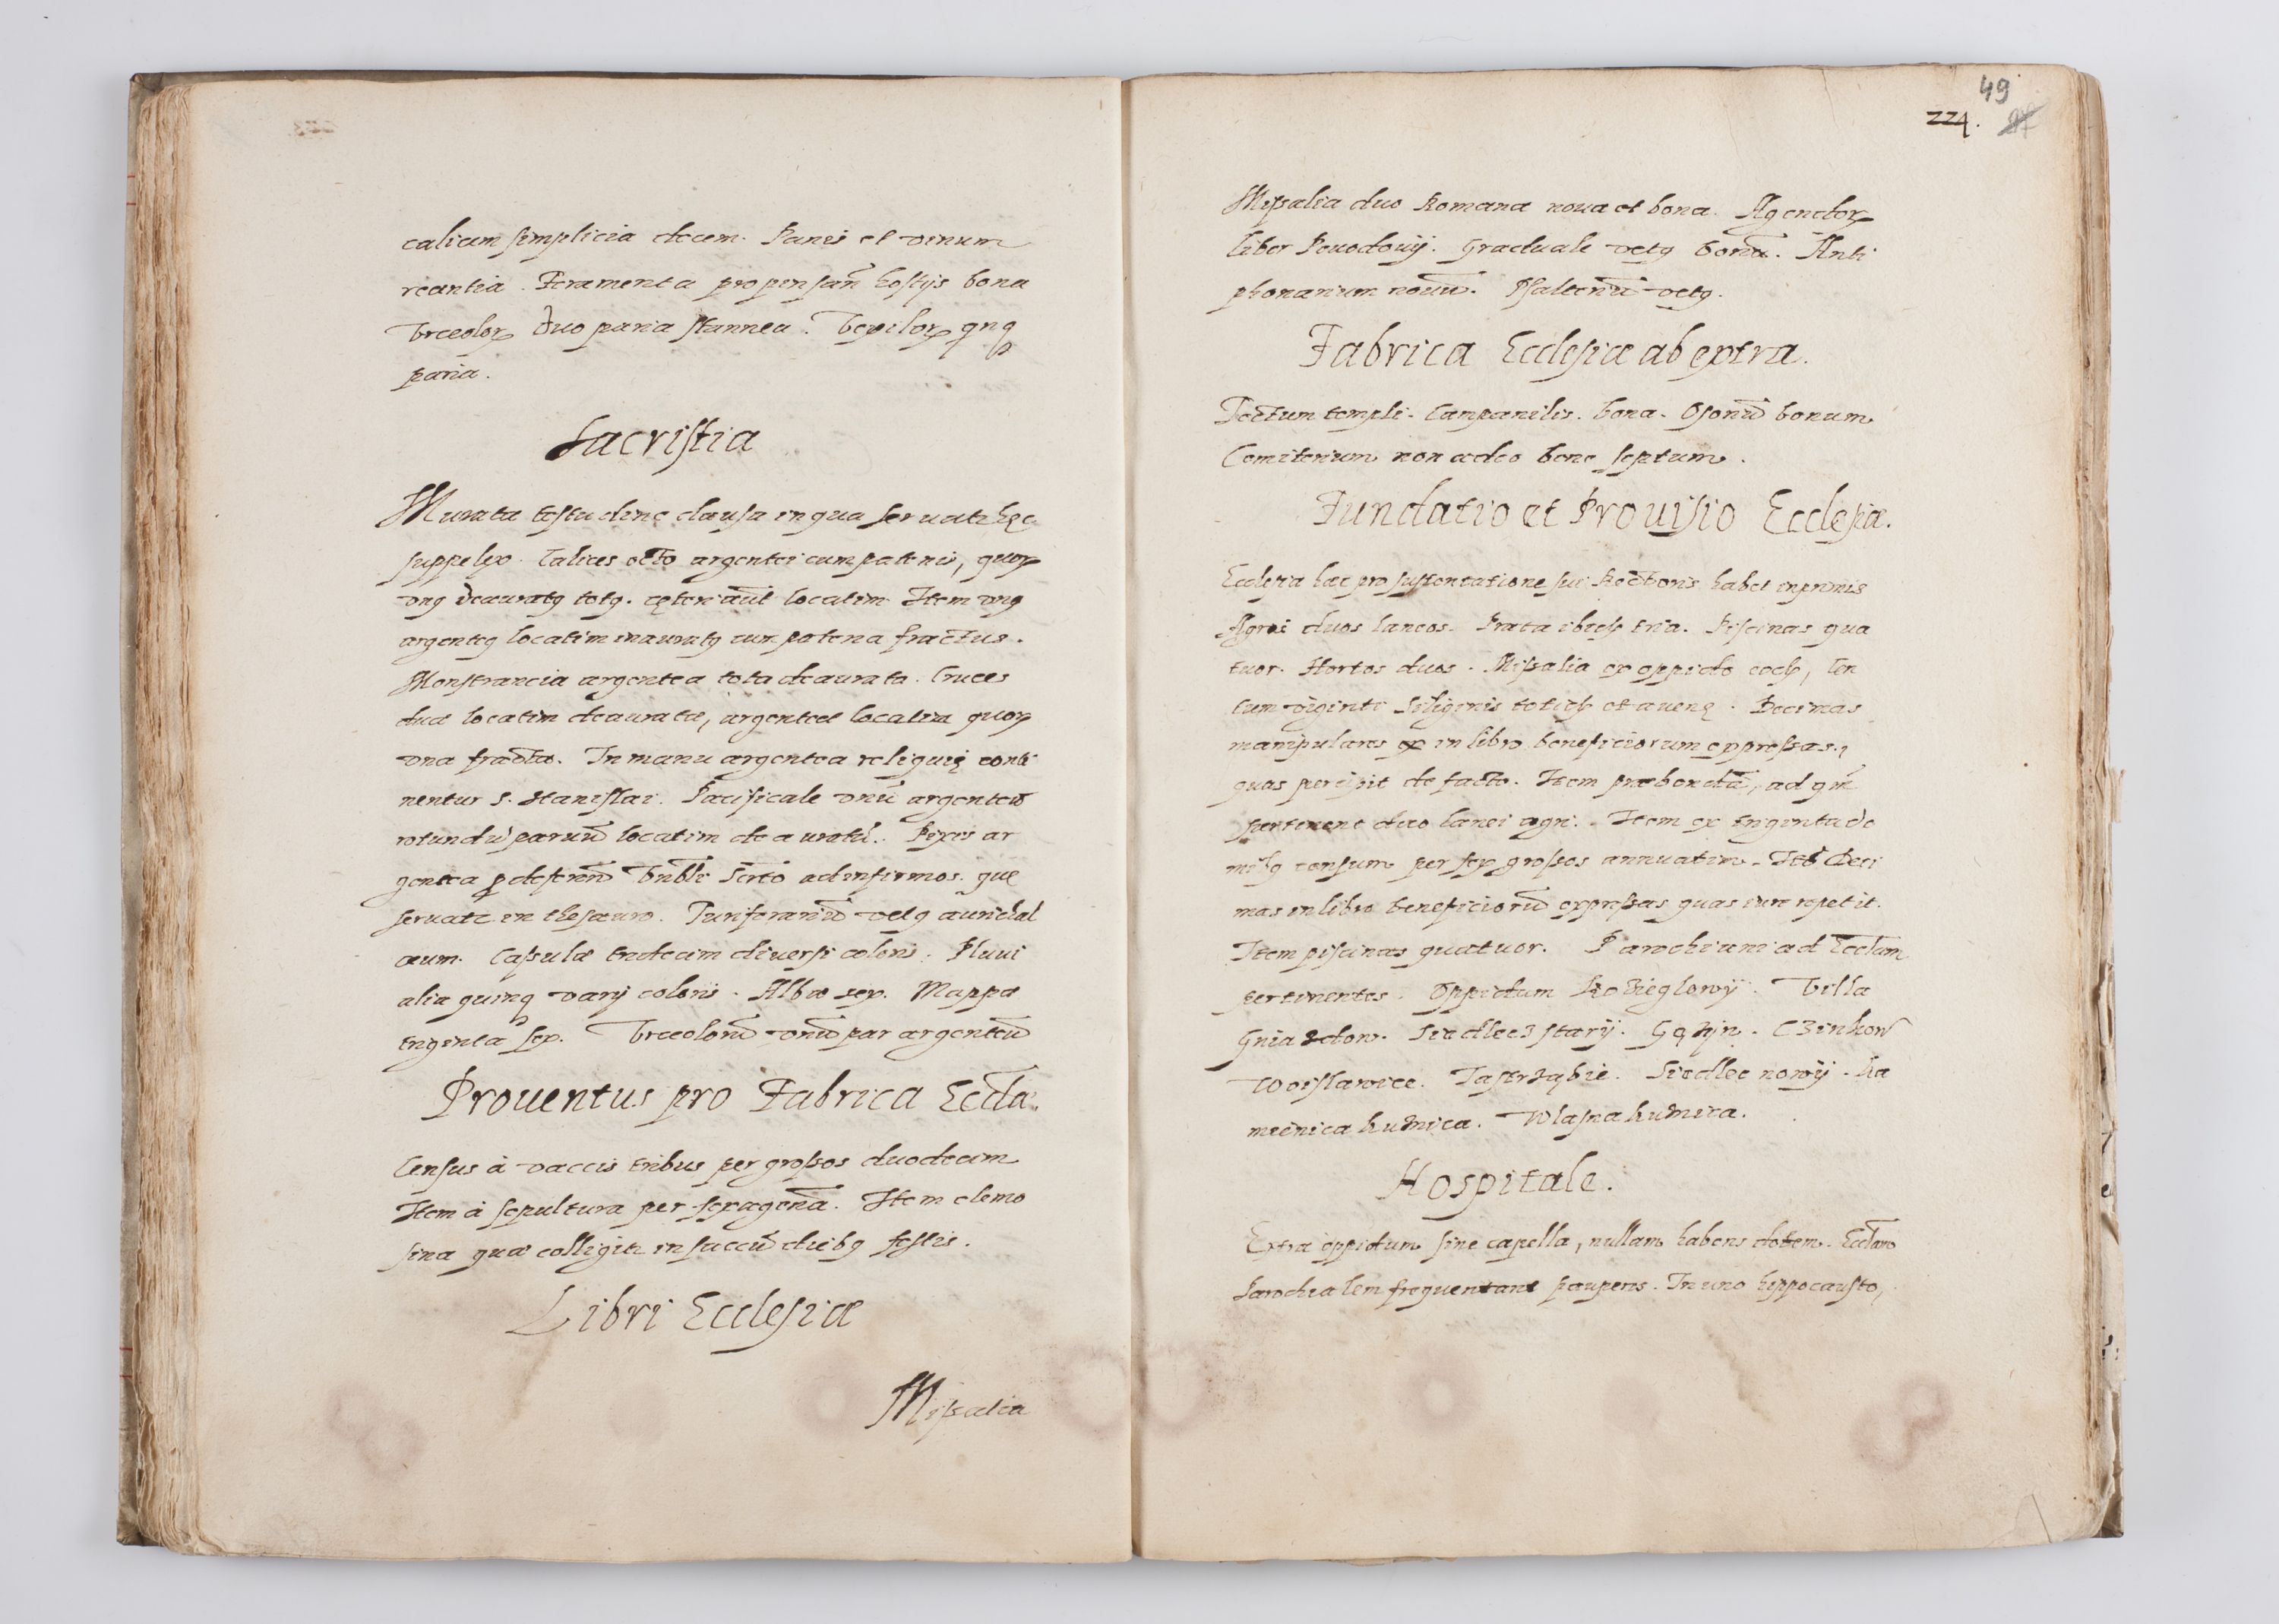 calicum simplicia decem. Panis et vinum
recentia. Feramenta pro pensan̄ hostijs bona
Vrceolorꝝ duo paria stannea. Vexilorꝝ qnqꝫ
paria.
Sacristia
Murata testudine clausa in qua seruatr hęc
suppelex. Calices octo argentei cum patenis, quorꝝ
vnꝰ deauratꝰ totꝰ. cęteri aūt locatim. Item vnꝰ
argenteꝰ locatim inauratꝰ cum patena fractus.
Monstrancia argentea tota deaurata. Cruces
duæ locatim deauratæ, argenteæ locatim quorꝝ
vna fracta. In manu argentea reliquię conti
nentur S. Stanislai. Pacificale vnū argenteū
rotundū paruū locatim deauratū. Pixis ar
gentea ꝑ deferen̄ Vn̄bli Scr̄to ad infirmos. quę
seruatr in thesauro. Turiferariū vetꝰ aurichal
ceum. Casulæ tredecim diuersi coloris. Pluui
alia quinqꝫ varij coloris. Albæ sex. Mappæ
triginta sex. Vrceolorū vnū par argenteū
Prouentus pro Fabrica Eccl̄æ.
Census à vaccis tribus per grossos duodecim
Item à sepultura per sexagenā. Item elemo
sina quæ colligitr in saccū diebꝰ festis.
Libri Ecclesiæ
Missalia
49
224.
Missalia duo Romana noua et bona. Agendorꝝ
liber Pouodouij. Graduale vetꝰ bonū. Anti
phonarium nouū. Psalteriū vetꝰ.
Fabrica Ecclesiæ ab extra.
Tectum templi. Campanilis. bona. Osoriū bonum
Cemiterium non adeo bene septum.
Fundatio et Prouisio Ecclesiæ.
Ecclesia hæc pro sustentatione sui Rectoris habet inprimis
Agros duos laneos. Prata ibidē tria. Piscinas qua
tuor. Hortos duos. Missalia ex oppido eodē, Cen
tum viginti Siliginis totidē et auenę. Decimas
manipulares in libro beneficiorum expressas,
quas percipit de facto. Item præbendā, ad qm̄
pertinent duo lanei agri. Item ex triginta do
mibꝰ censum per sex grossos annuatim. Itē Deci
mas in libro beneficiorū expressas quas iure repetit.
Item piscinas quatuor. Parochiani ad Eccl̄am
pertinentes. Oppidum Kozieglowÿ. Villa
Gniazdow. Siedlecz starÿ. Gęzÿn. Czinkow
Woislawice. Jastrząbie. Siedlec nowÿ. Ka
mienica kuznica. Wlasna kuznica.
Hospitale.
Extra oppidum sine capella, nullam habens dotem. Eccl̄am
Parochialem frequentant pauperes. In uno hippocausto,